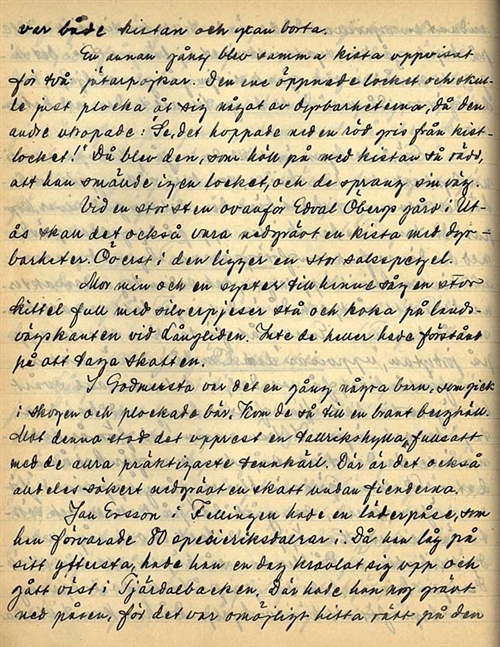 var både kistan och ytan borta.
En annan gång blev samma kista uppvisat
för två jätarpojkar. Den ene öppnade locket och skul-
le just plocka åt sig något av dyrbarheterna, då den
andre utropade: "Se, det hoppade ned en röd gris från kist-
locket!" Då blev den, som höll på med kistan så rädd,
att han smällde igen locket, och de sprang sin väg.
Vid en stor sten ovanför Edval Obergs gård i Ut-
ås skall det också vara nedgrävt en kista med dyr-
barheter. Överst i den ligger en stor salsspegel.
Mor min och en syster till henne såg en stor
kittel full med silverpjeser stå och koka på lands-
vägskanten vid Långliden. Inte de heller hade förstånd
på att taga skatten.
I Godmersta var det en gång några barn, som gick
i skogen och plockade bär. Kom de så till en brant berghäll.
Mot denna stod det upprest en tallrikshylla, fullsatt
med de allra präktigaste tennkärl. Där är det också
alldeles säkert nedgrävt en skatt undan fienderna.
Jan Ersson i Fillingen hade en läderpåse, som
han förvarade 80 specieriksdalrar i. Då han låg på
sitt yttersta, hade han en dag kravlat sig upp och
gått väst i Tjärdalbacken. Där hade han nog grävt
ned påsen, för det var omöjligt hitta rätt på den